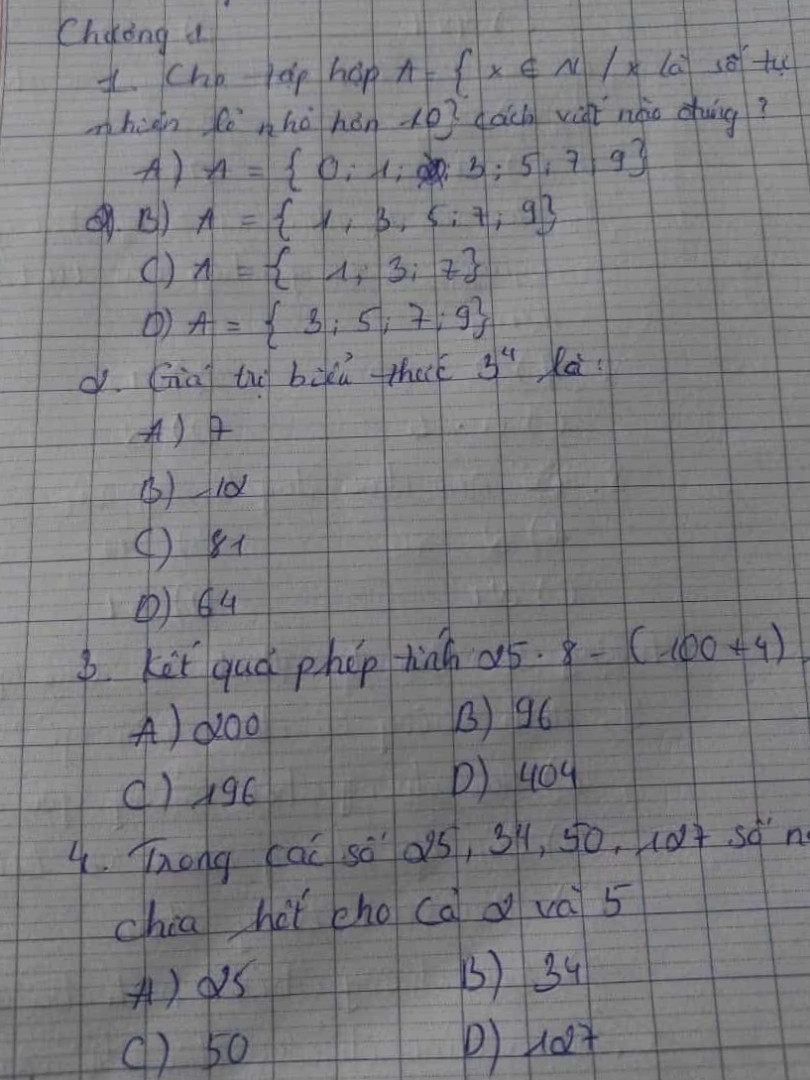 Chương 1
1. Cho tập hợp A = { x ∈ N / x là số tự
nhiên lẻ nhỏ hơn 10} cách viết nào đúng ?
A) A = { 0; 1; 3; 5; 7; 9}
B) A = { 1; 3; 5; 7; 9}
C) A = { 1; 3; 7}
D) A = { 3; 5; 7; 9}
2. Giá trị biểu thức 3⁴ là:
A) 7
B) 12
C) 81
D) 64
3. Kết quả phép tính 25 . 8 - (100 + 4)
A) 200 B) 96
C) 196 D) 404
4. Trong các số 25, 34, 50, 127 số
chia hết cho cả 2 và 5
A) 25 B) 34
C) 50 D) 127